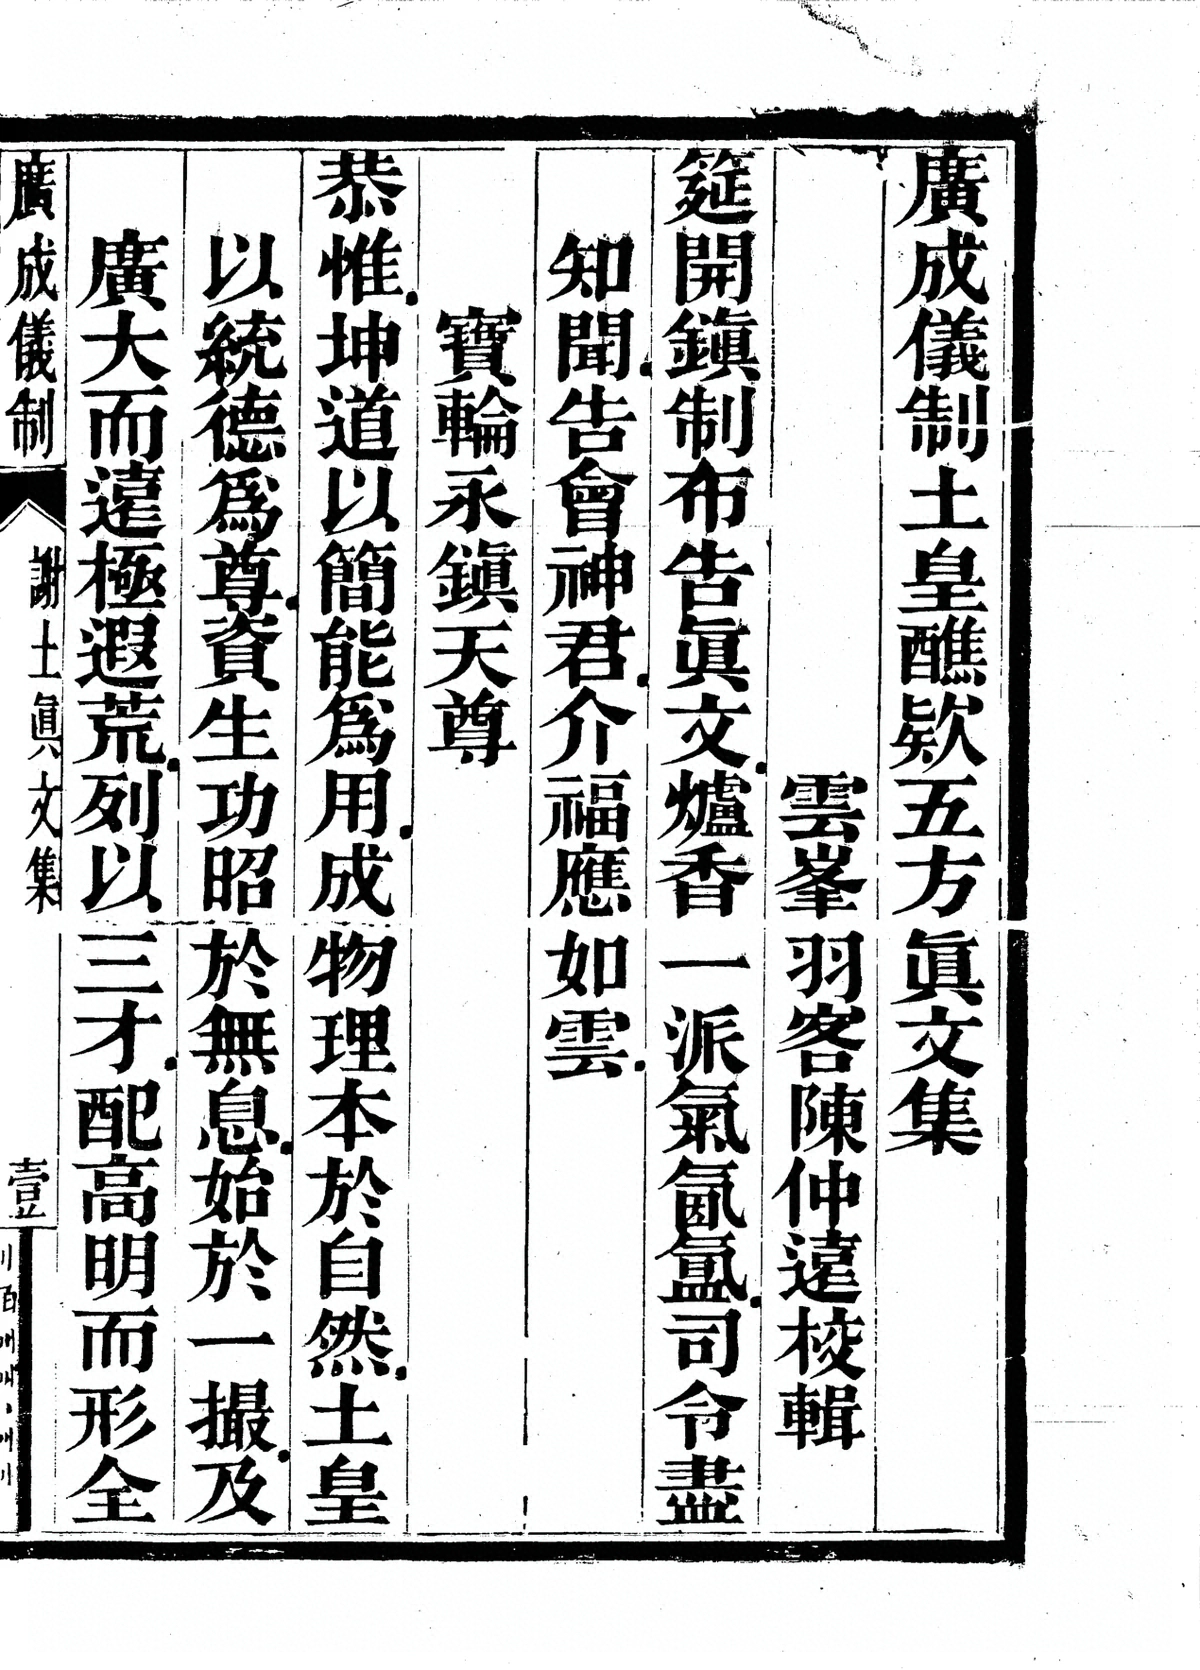 廣成儀制土皇醮欵五方眞文集
雲峯羽客陳仲遠校輯
筵開鎭制布告眞文.爐香一派氣氤氳.司令盡
知聞.告會神君.介福應如雲.
寶輪永鎭天尊
恭惟.坤道以簡能爲用.成物理本於自然.土皇
以統德爲尊.資生功昭於無息.始於一撮.及
廣大而遠極遐荒.列以三才.配高明而形全
廣成儀制 謝土眞文集 壹